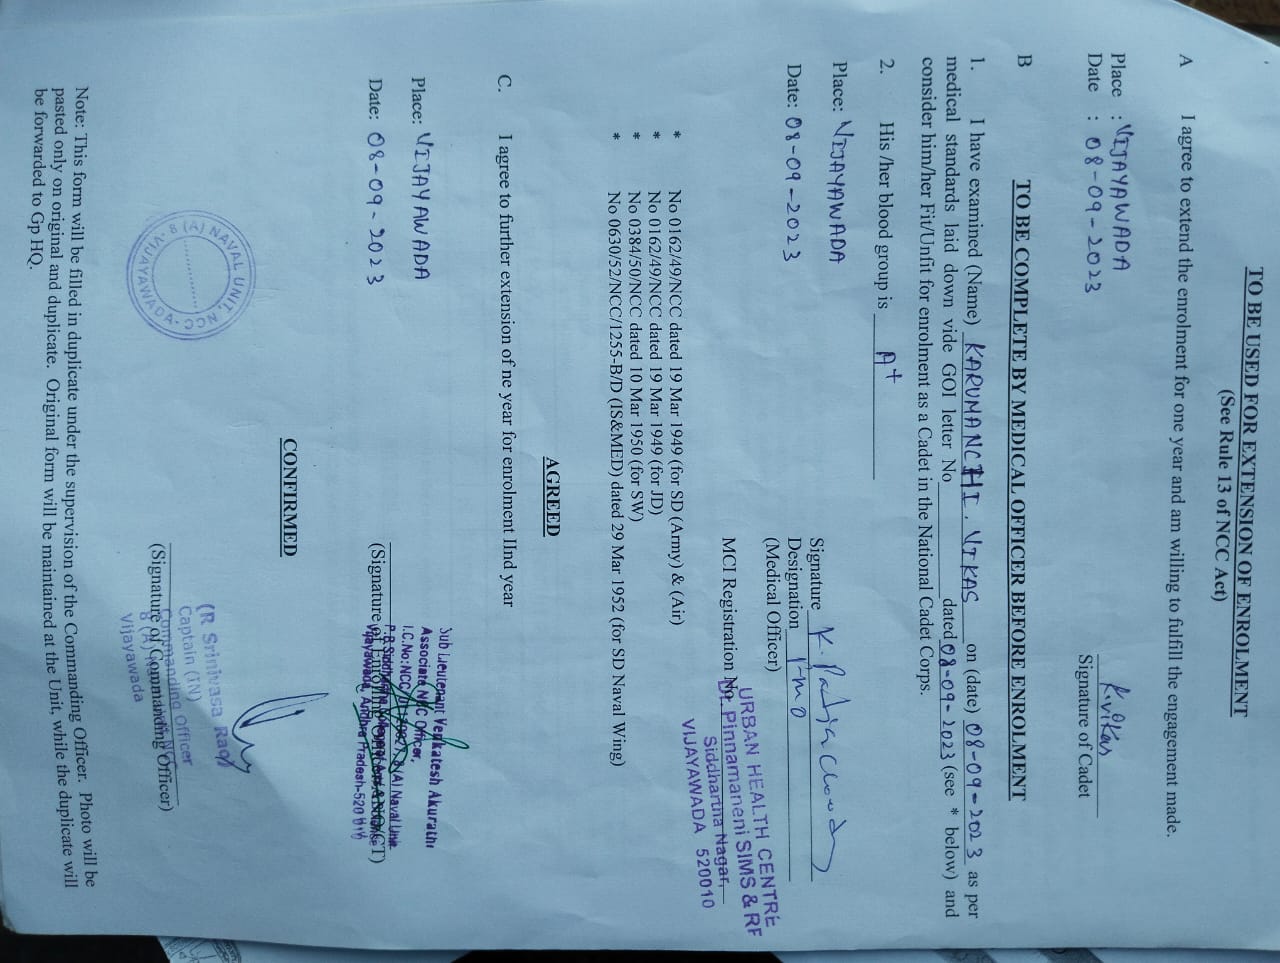 TO BE USED FOR EXTENSION OF ENROLMENT
(See Rule 13 of NCC Act)
A I agree to extend the enrolment for one year and am willing to fulfill the engagement made.
Place : VIJAYAWADA
Date : 08-09-2023
K.Vikas
Signature of Cadet
B TO BE COMPLETE BY MEDICAL OFFICER BEFORE ENROLMENT
1. I have examined (Name) KARUMANCHI. VIKAS on (date) 08-09-2023 as per
medical standards laid down vide GOI letter No dated 08-09-2023 (see * below) and
consider him/her Fit/Unfit for enrolment as a Cadet in the National Cadet Corps.
2. His /her blood group is A+
Place: VIJAYAWADA
Date: 08-09-2023
Signature K.
Designation
(Medical Officer)
MCI Registration No.
URBAN HEALTH CENTRE
Dr. Pinnamaneni SIMS & RF
Siddhartha Nagar,
VIJAYAWADA 520010
* No 0162/49/NCC dated 19 Mar 1949 (for SD (Army) & (Air)
* No 0162/49/NCC dated 19 Mar 1949 (for JD)
* No 0384/50/NCC dated 10 Mar 1950 (for SW)
* No 0630/52/NCC/1255-B/D (IS&MED) dated 29 Mar 1952 (for SD Naval Wing)
AGREED
C. I agree to further extension of ne year for enrolment IInd year
Place: VIJAYAWADA
Date: 08-09-2023
Sub Lieutenant Venkatesh Akurathi
Associate NCC Officer,
I.C.No:NCC (A) Naval Unit
Vijayawada, Andhra Pradesh-520
(Signature of
CONFIRMED
(R Srinivasa Rao)
Captain (IN)
Commanding Officer
8 (A)
Vijayawada
(Signature of Commanding Officer)
8 (A) NAVAL UNIT, NCC
VIJAYAWADA
Note: This form will be filled in duplicate under the supervision of the Commanding Officer. Photo will be
pasted only on original and duplicate. Original form will be maintained at the Unit, while the duplicate will
be forwarded to Gp HQ.